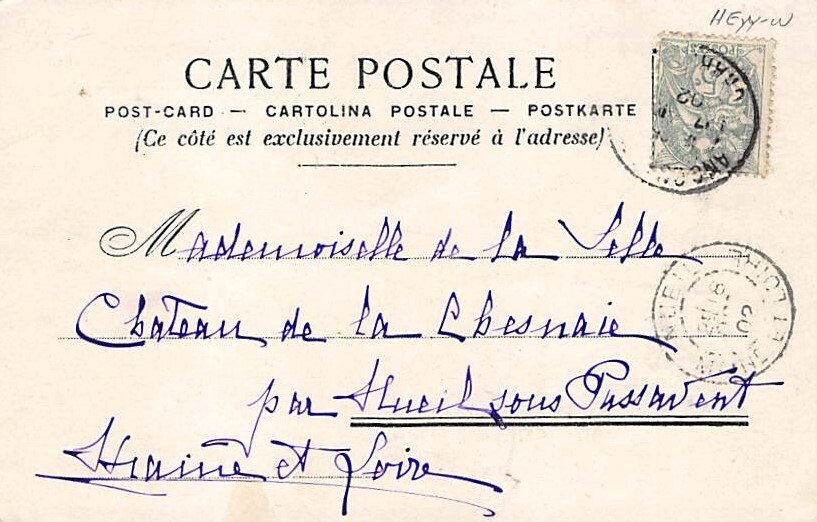 CARTE POSTALE
POST-CARD — CARTOLINA POSTALE — POSTKARTE
(Ce côté est exclusivement réservé à l'adresse)
Mademoiselle de la Selle
Château de la Chesnaie
par Nueil sous Passavent
Maine et Loire
02
NUEIL
MAINE ET LOIRE
02